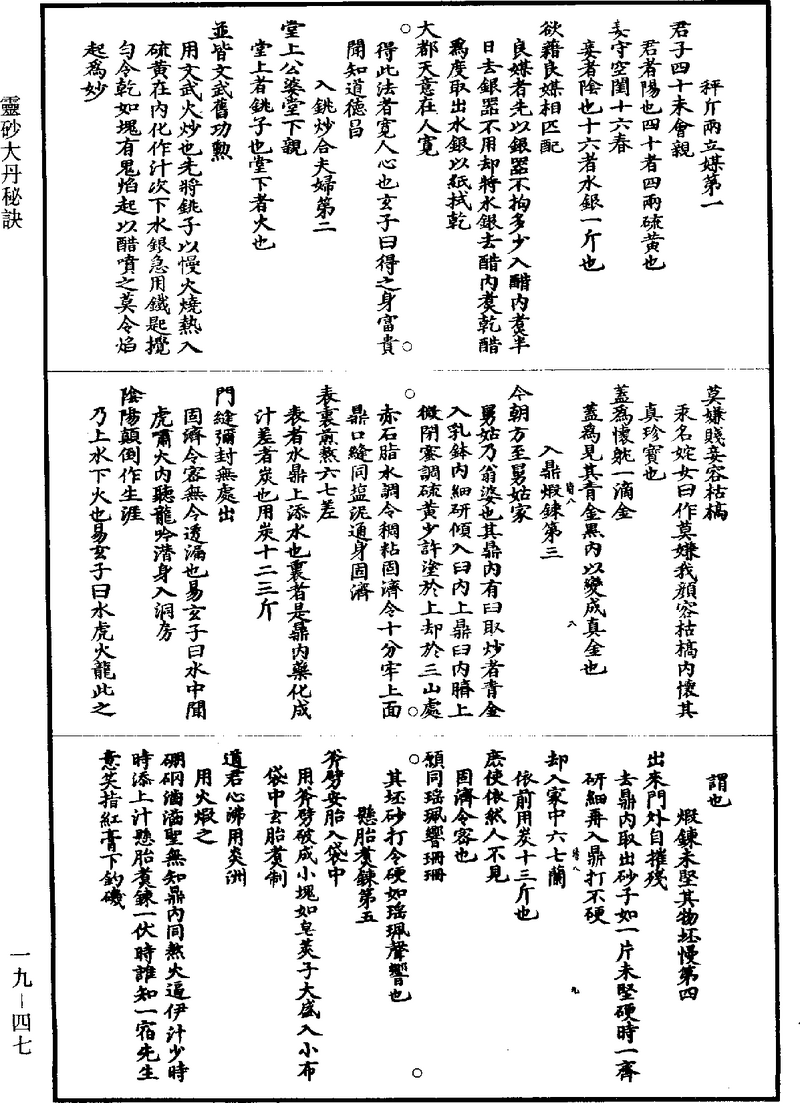 秤斤兩立媒第一
君子四十未會親
君者陽也四十者四兩硫黃也
妾守空閨十六春
妾者陰也十六者水銀一斤也
欲藉良媒相匹配
良媒者先以銀器不拘多少入醋內煮半
日去銀器不用却將水銀去醋內煮乾醋
爲度取出水銀以紙拭乾
大都天意在人寬
得此法者寬人心也玄子曰得之身富貴
聞知道德昌
入銚炒合夫婦第二
堂上公婆堂下親
堂上者銚子也堂下者火也
並皆文武舊功勲
用文武火炒也先將銚子以慢火燒熱入
硫黃在內化作汁次下水銀急用鐵匙攪
勻令乾如塊有鬼焰起以醋噴之莫令焰
起爲妙
莫嫌賤妾容枯槁
汞名姹女曰作莫嫌我顔容枯槁內懷其
真珍寶也
蓋爲懷躭一滴金
蓋爲見其青金黑內以變成真金也
入鼎煅鍊第三
今朝方至舅姑家
舅姑乃翁婆也其鼎內有臼取炒者青金
入乳鉢內細研傾入臼內上鼎臼內臍上
微閉蜜調硫黃少許塗於上却於三山處
赤石脂水調令稠粘固濟令十分牢上面
鼎口縫同塩泥通身固濟
表裏煎熬六七差
表者水鼎上添水也裏者是鼎內藥化成
汁差者炭也用炭十二三斤
門縫彌封無處出
固濟令容無令透漏也易玄子曰水中聞
虎嘯火內聽龍吟潛身入洞房
陰陽顛倒作生涯
乃上水下火也易玄子曰水虎火龍此之
謂也
煅鍊未堅其物坯慢第四
出來門外自摧殘
去鼎內取出砂子如一片未堅硬時一齊
研細再入鼎打不硬
却入家中六七蘭
依前用炭十三斤也
庶使依然人不見
固濟令容也
願同瑶珮響珊珊
其坯砂打令硬如瑶珮聲響也
懸胎煮鍊第五
斧劈安胎入袋中
用斧劈破成小塊如皂莢子大盛入小布
袋中玄胎煮制
道君心沸用炎洲
用火煅之
硼硇滷滋聖無知鼎內同熬火逼伊汁少時
時添上汁懸胎煮鍊一伏時誰知一宿先生
意笑指紅膏下釣磯
靈砂大丹秘訣
一九-四七